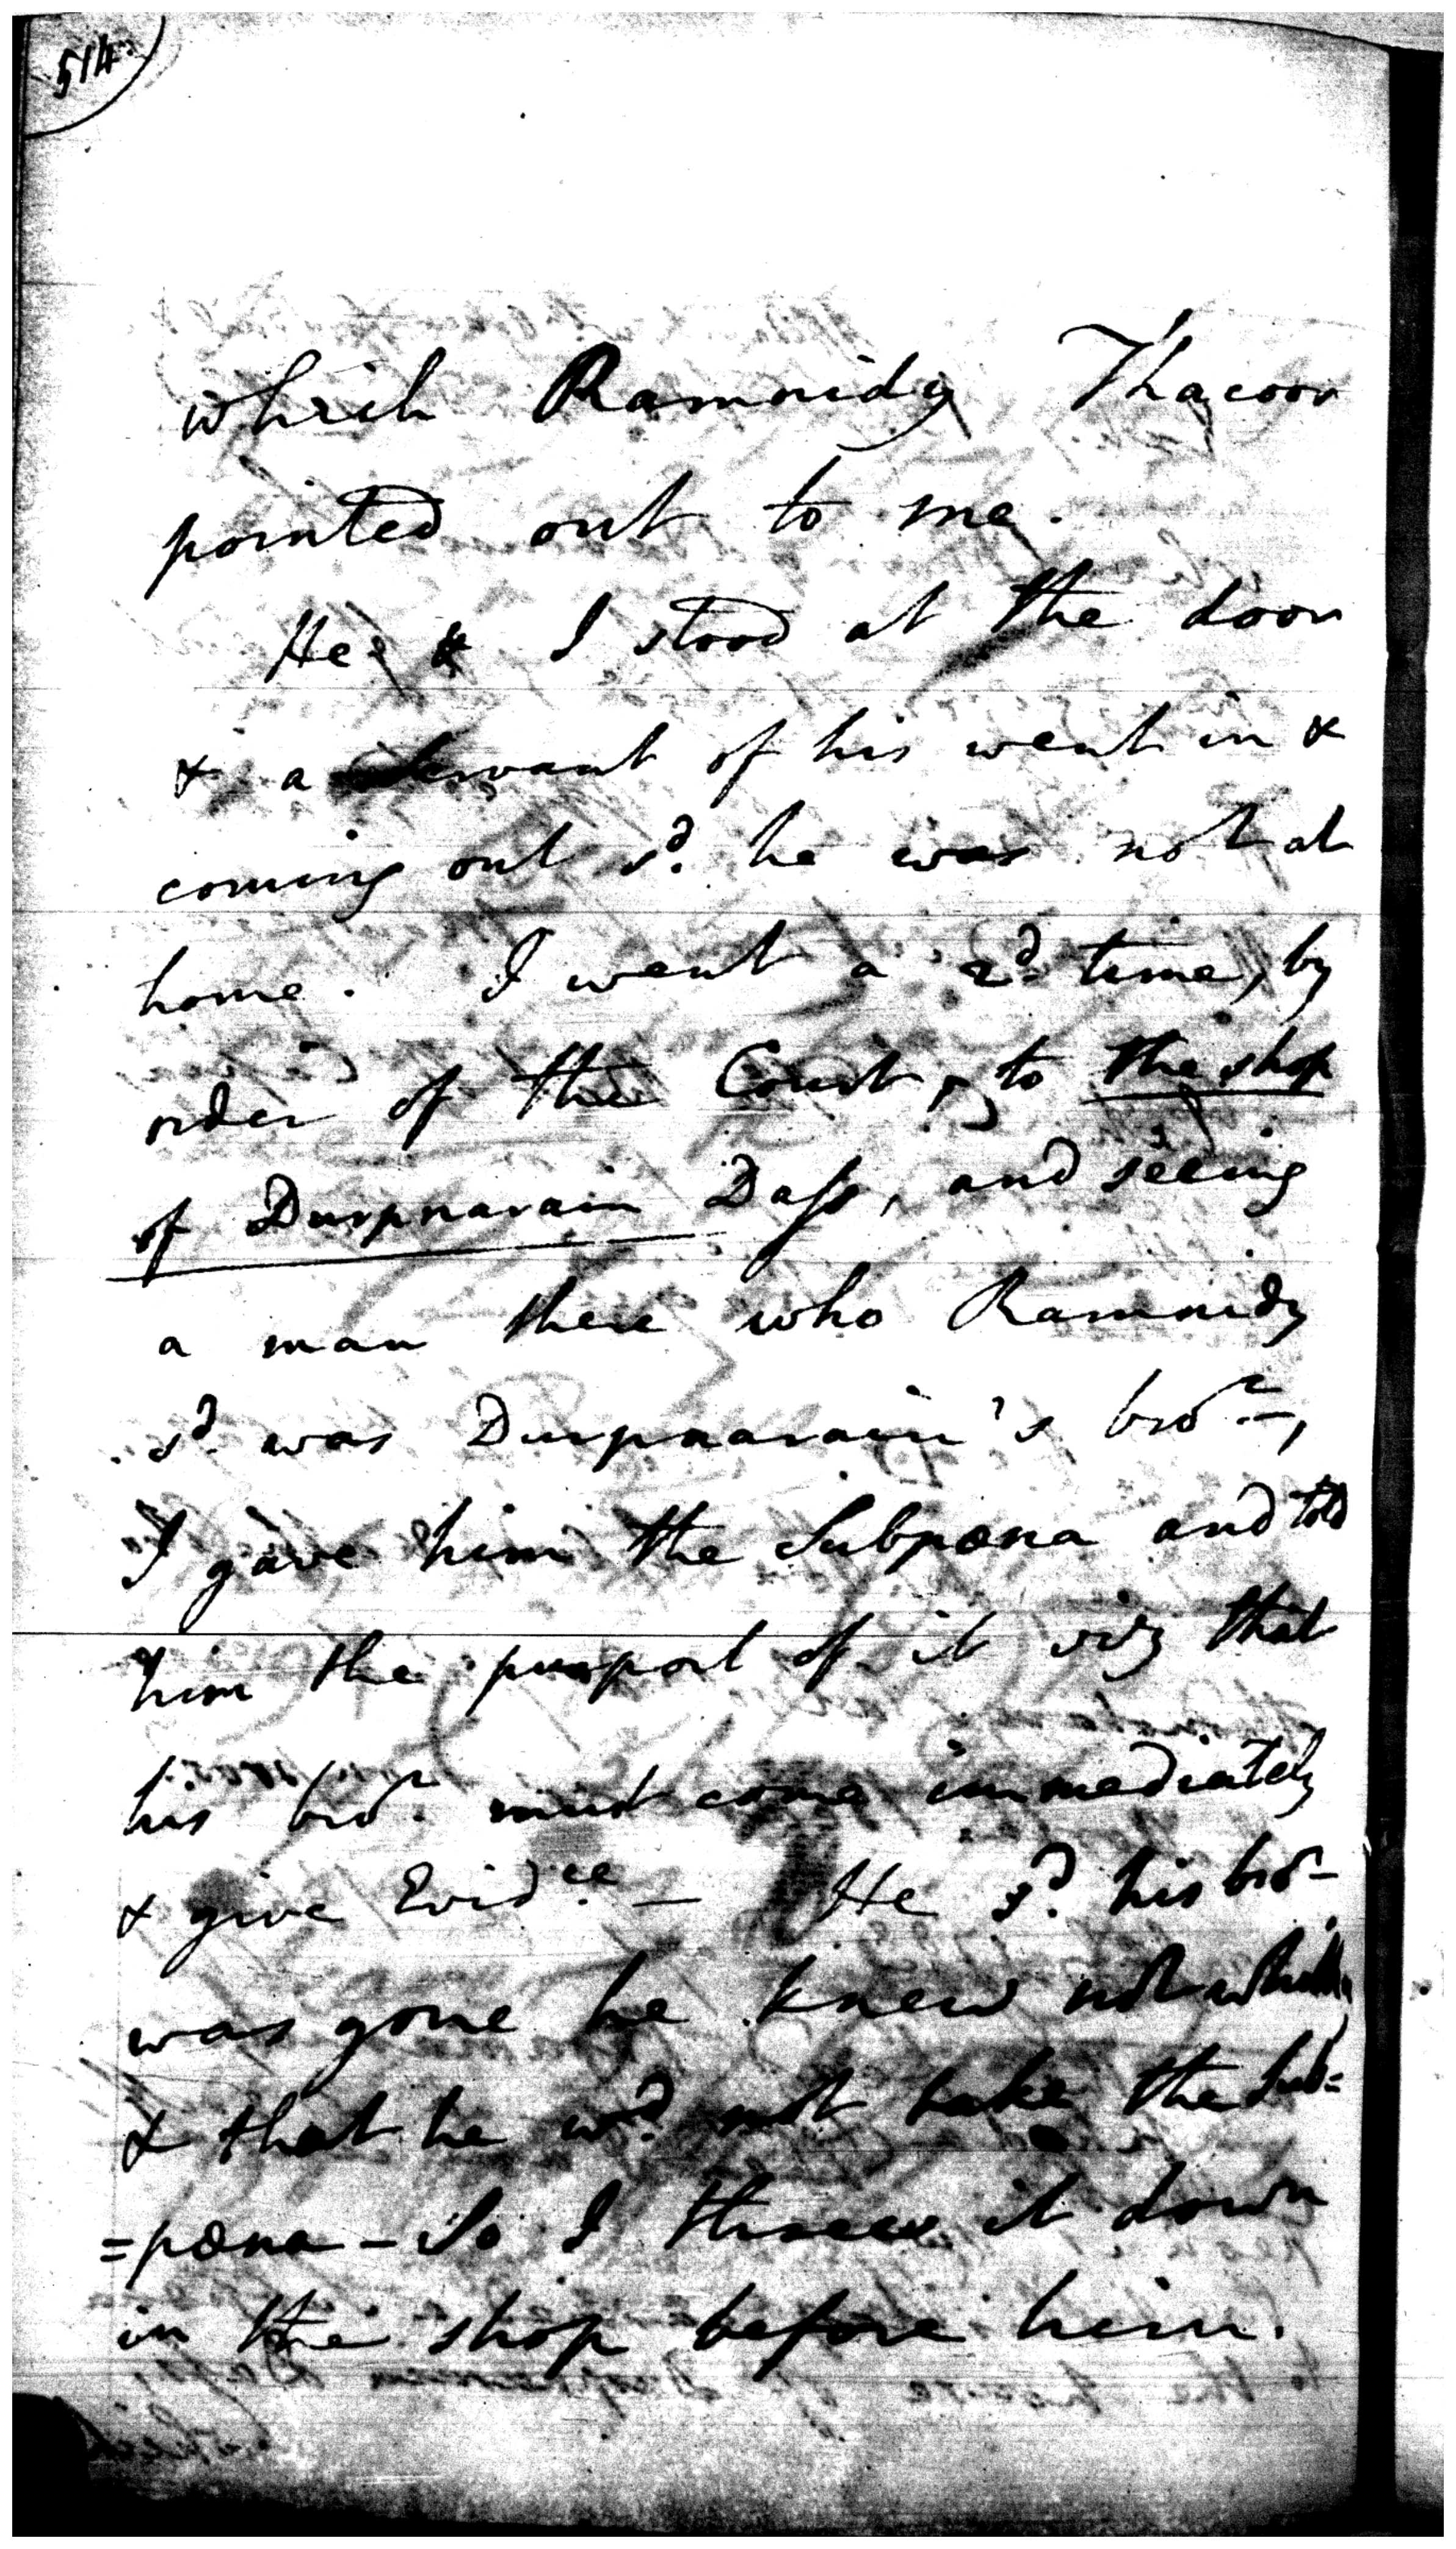 514
which Ramnidy Thacoor
pointed out to me.
He & I stood at the door
& a Servant of his went in &
coming out sd. he was not at
home. I went a 2d. time, by
order of the Court, to the shop
of Durpnarain Dass, and seeing
a man there who Ramnidy
sd. was Durpnarain's bror.,
I gave him the Subpœna and told
him the purport of it viz that
his bror. must come immediately
& give Evidce. — He sd. his bror.
was gone he knew not whither
& that he wd. not take the Sub=
=pœna – So I threw it down
in the shop before him.